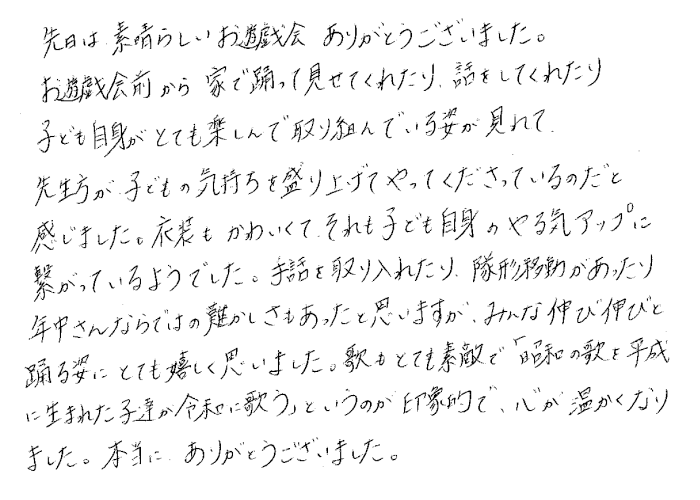 先日は 素晴らしいお遊戯会 ありがとうございました。
お遊戯会前から 家で踊って見せてくれたり、話をしてくれたり
子ども自身がとても楽しんで取り組んでいる姿が見れて、
先生方が子どもの気持ちを盛り上げてやってくださっているのだと
感じました。衣装もかわいくて、それも子ども自身のやる気アップに
繋がっているようでした。手話を取り入れたり、隊形移動があったり
年中さんならではの難かしさもあったと思いますが、みんな伸び伸びと
踊る姿にとても嬉しく思いました。歌もとても素敵で「昭和の歌を平成
に生まれた子達が令和に歌う」というのが印象的で、心が温かくなり
ました。本当に、ありがとうございました。